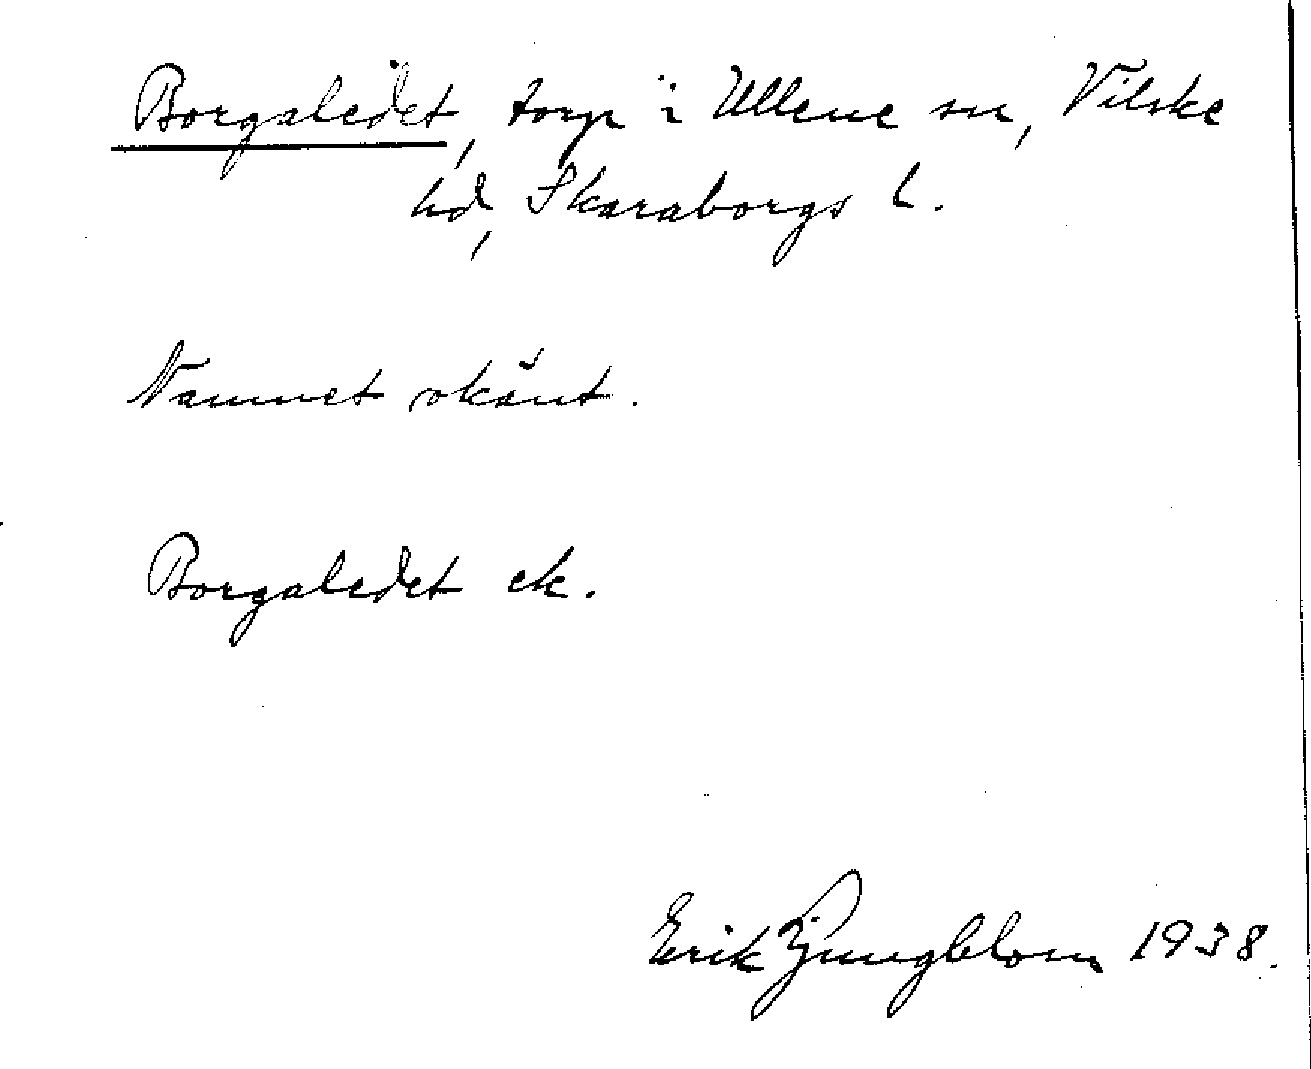 Borgaledet, torp i Ullene sn, Vilske
hd, Skaraborgs l.
Namnet okänt.
Borgaledet ek.
Erik Ljungblom 1938.